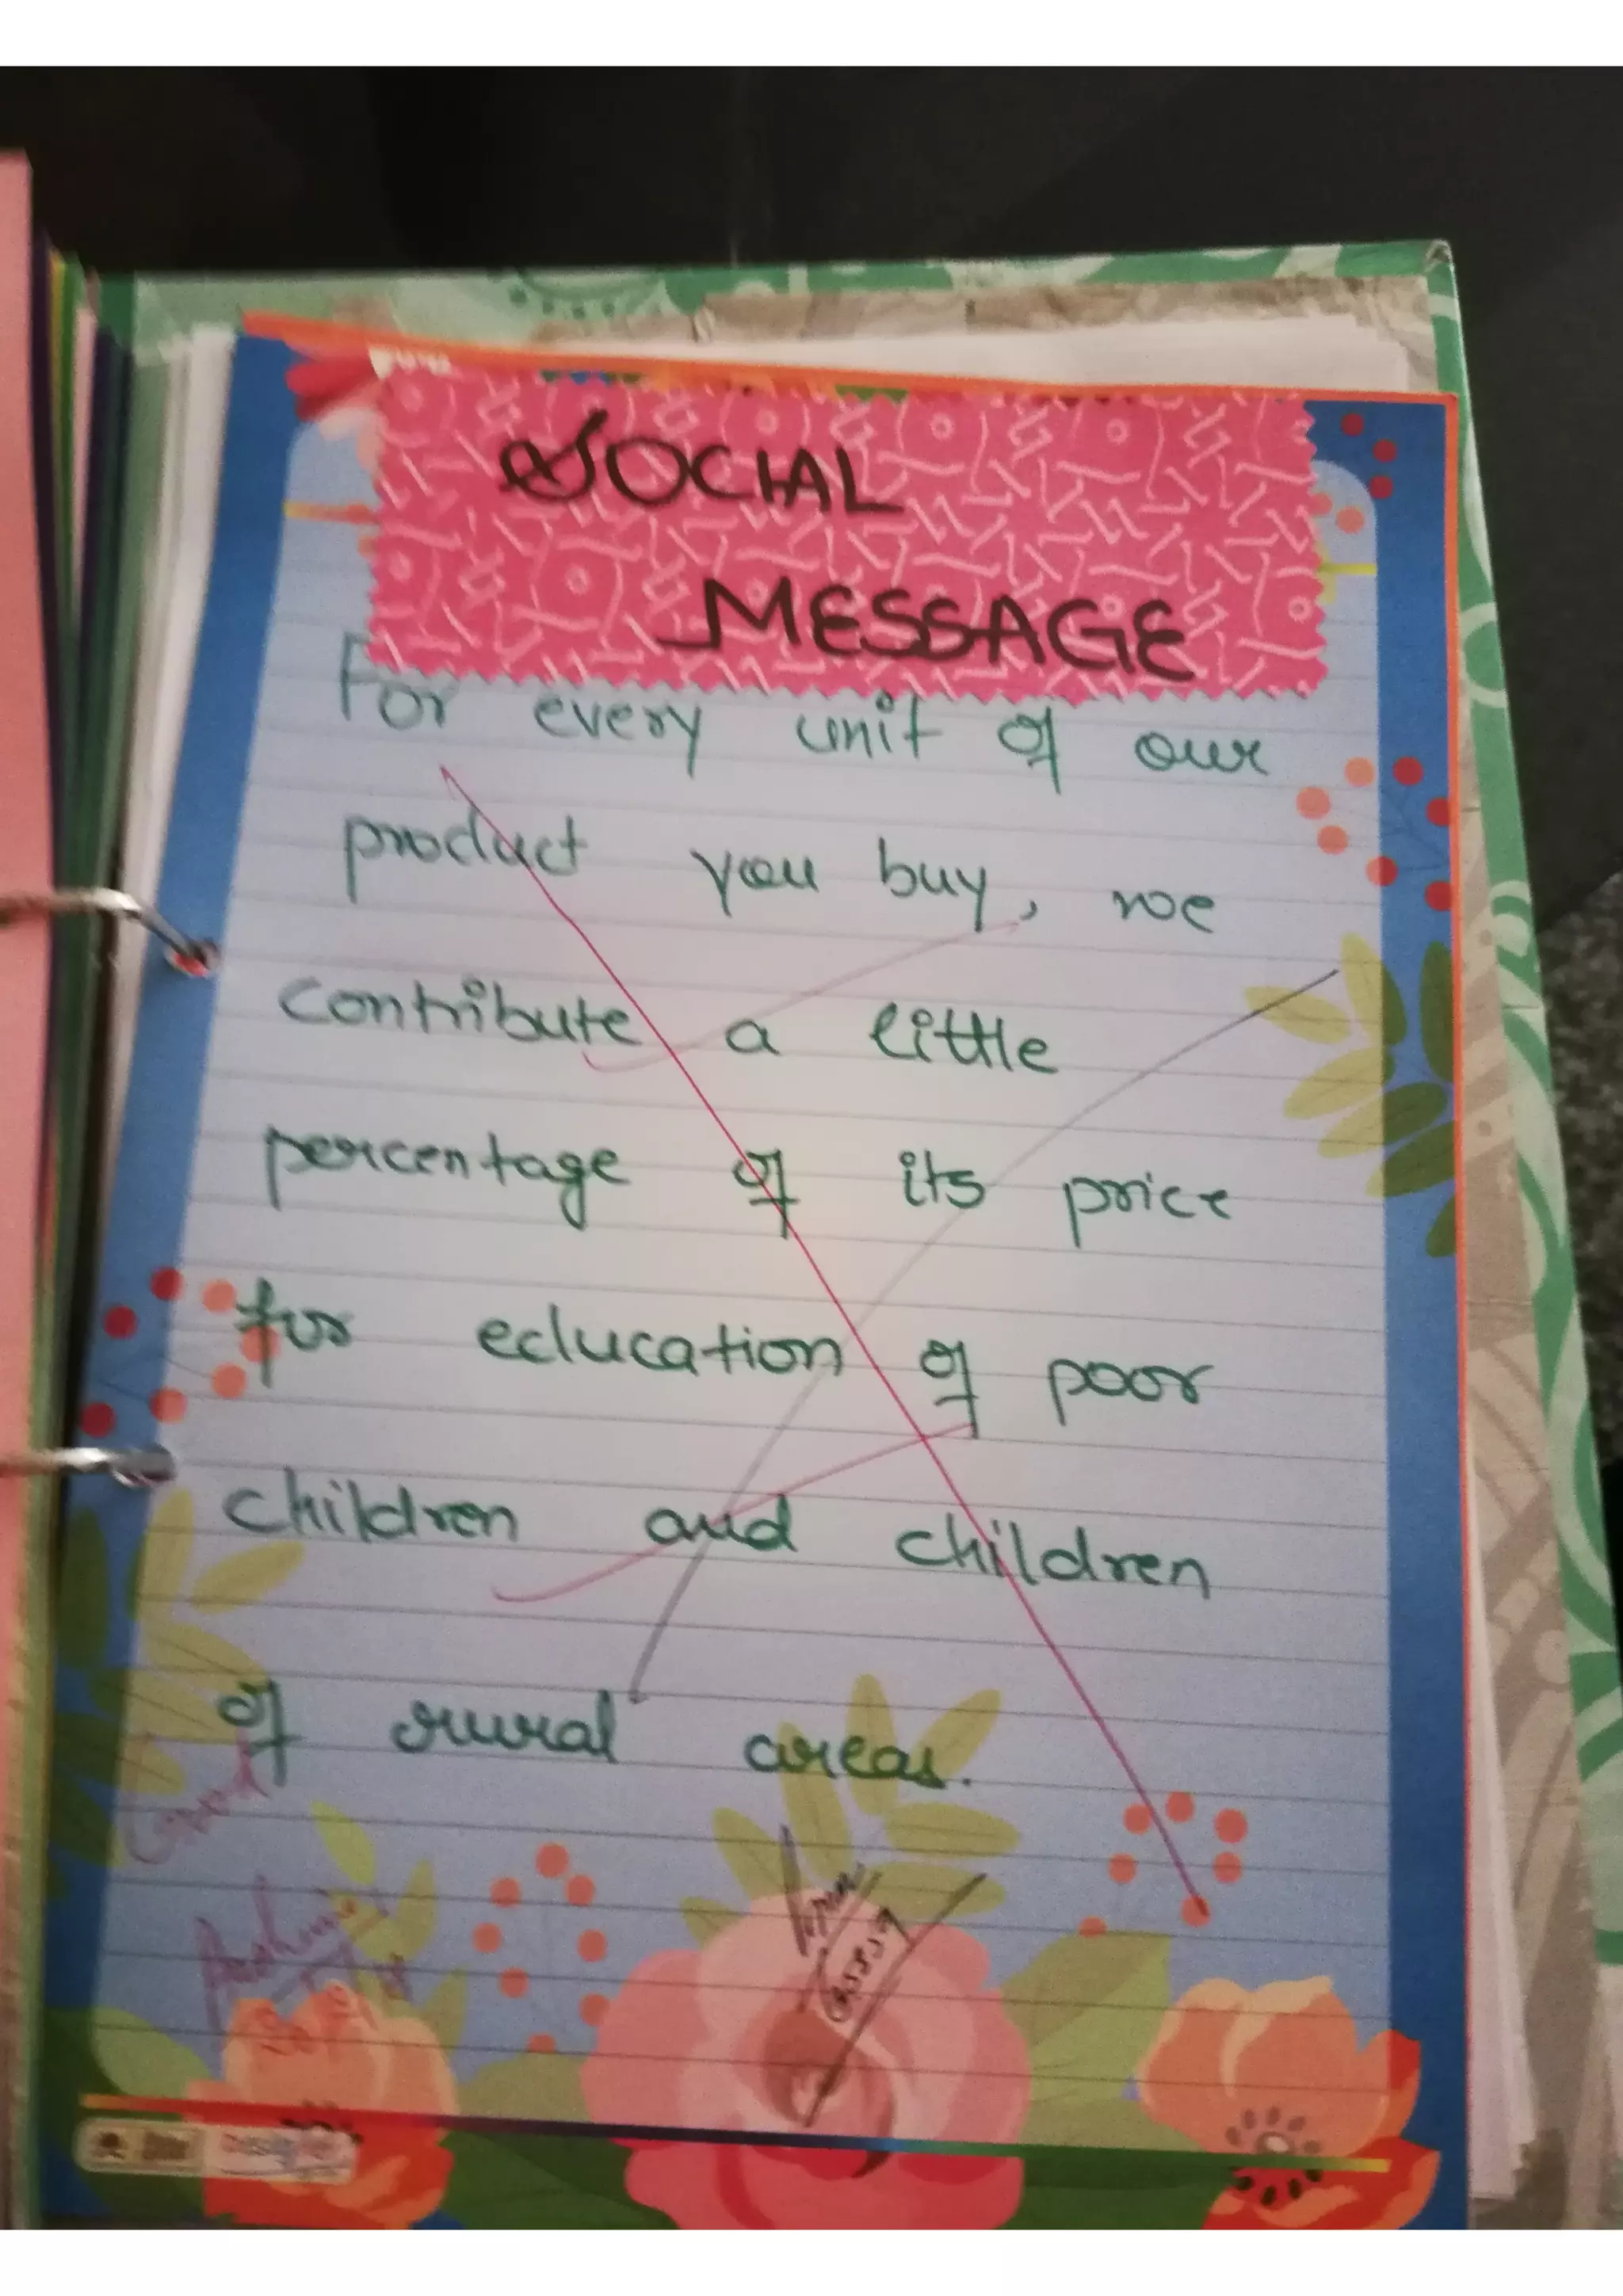 SOCIAL
MESSAGE
For every unit of our
product you buy, we
contribute a little
percentage of its price
for education of poor
children and children
of rural areas.
Good